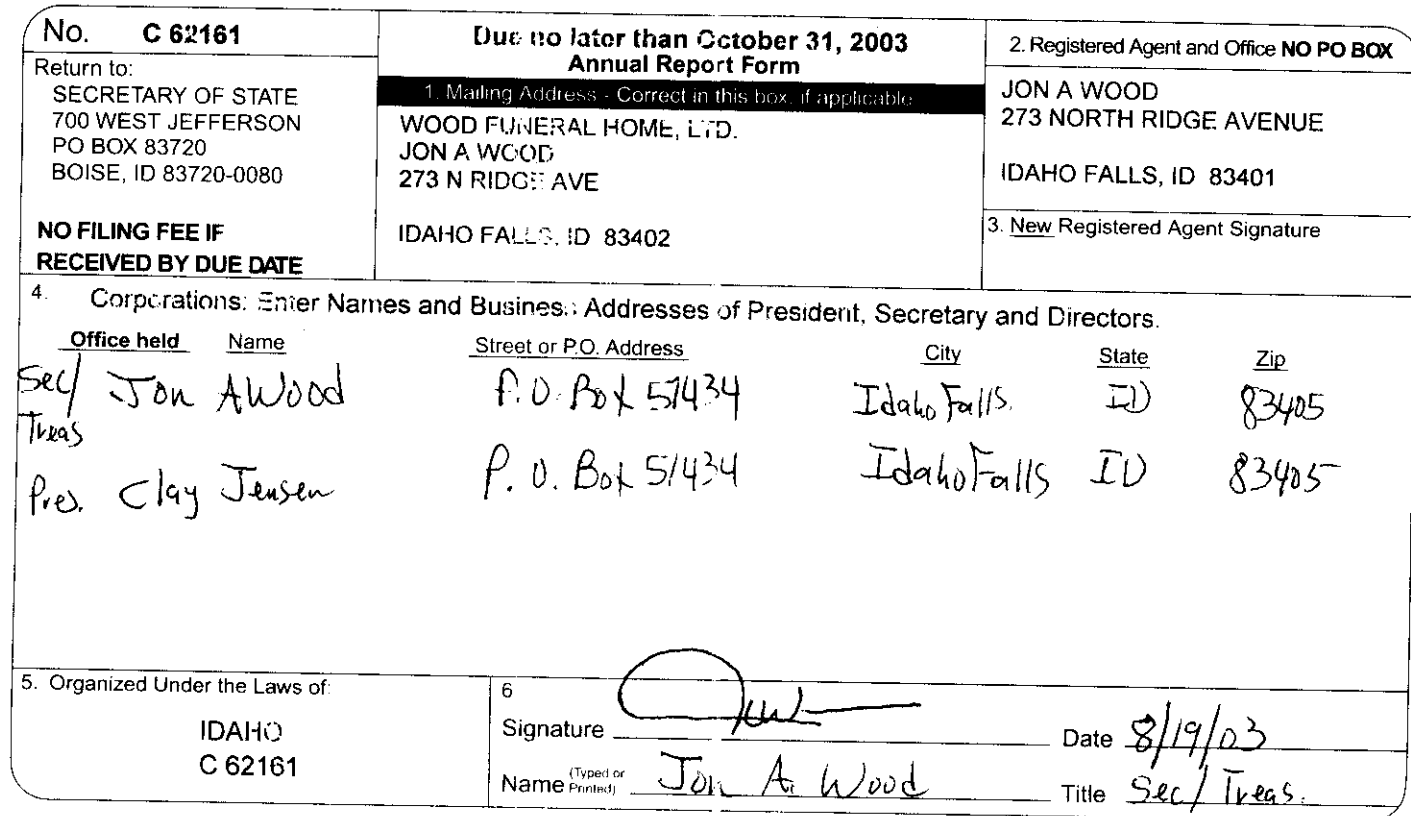 No. C 62161
Return to:
SECRETARY OF STATE
700 WEST JEFFERSON
PO BOX 83720
BOISE, ID 83720-0080
NO FILING FEE IF
RECEIVED BY DUE DATE
Due no later than October 31, 2003
Annual Report Form
1. Mailing Address - Correct in this box, if applicable
WOOD FUNERAL HOME, LTD.
JON A WOOD
273 N RIDGE AVE
IDAHO FALLS, ID 83402
2. Registered Agent and Office NO PO BOX
JON A WOOD
273 NORTH RIDGE AVENUE
IDAHO FALLS, ID 83401
3. New Registered Agent Signature
4. Corporations: Enter Names and Business Addresses of President, Secretary and Directors.
Office held Name Street or P.O. Address City State Zip
Sec/ Jon A Wood P.O. Box 51434 Idaho Falls. ID 83405
Treas
Pres. Clay Jensen P.O. Box 51434 Idaho Falls ID 83405
5. Organized Under the Laws of:
IDAHO
C 62161
6
Signature Date 8/19/03
Name (Typed or Printed) Jon A. Wood Title Sec/Treas.